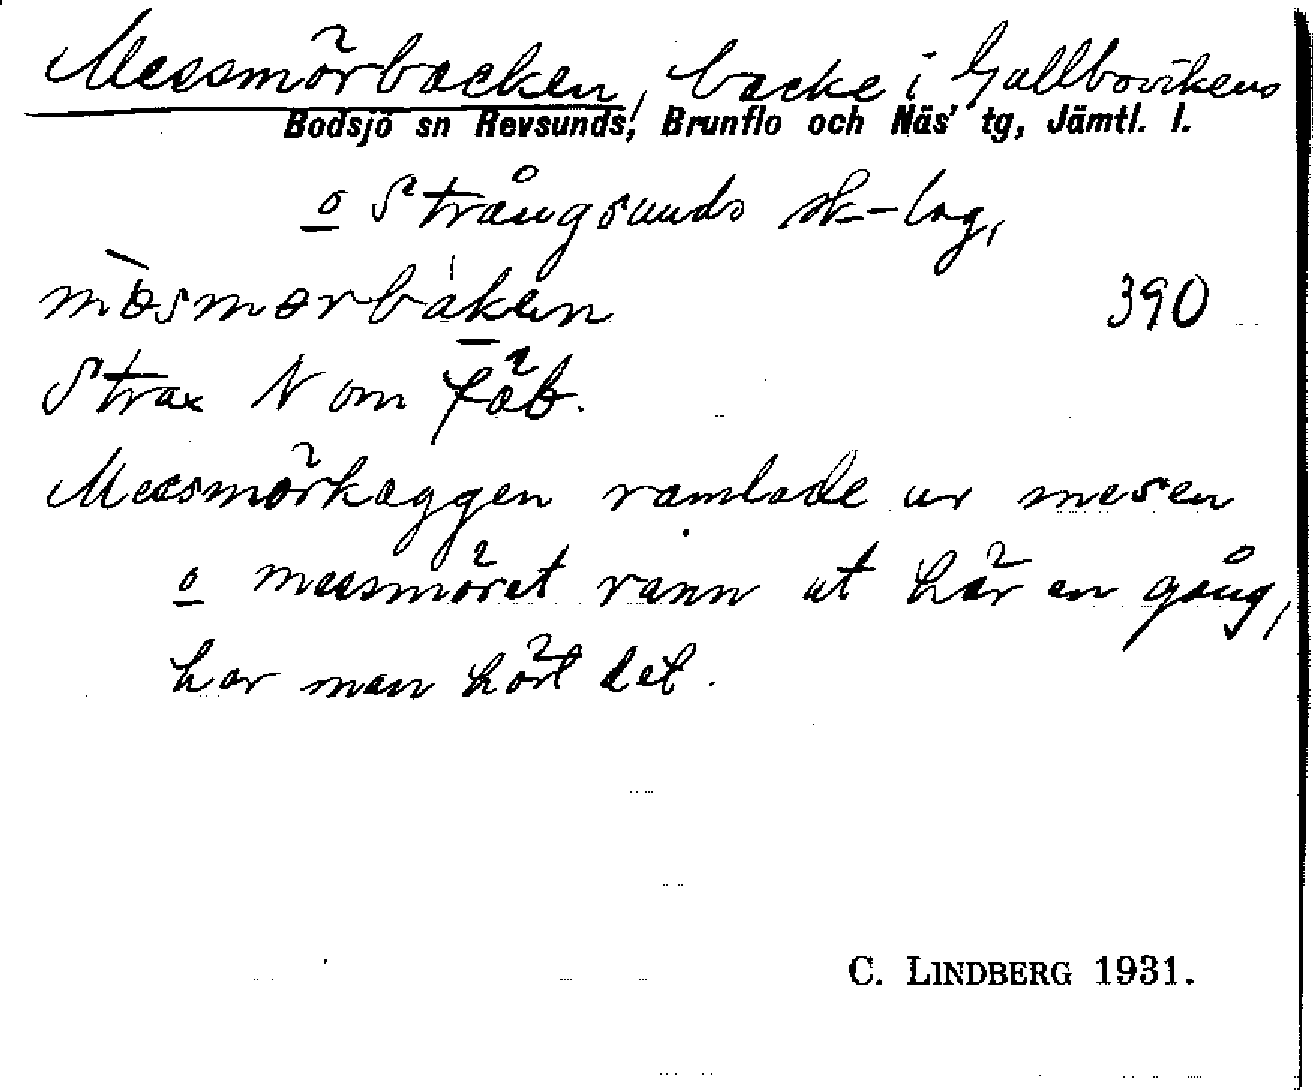 Messmörbacken, backe i Gallbovikens
Bodsjö sn Revsunds, Brunflo och Näs' tg, Jämtl. l.
o Strångsunds sk-lag,
mèsmørbáken 390
Strax N om fäb.
Messmörkaggen ramlade ur mesen
o messmöret rann ut här en gång,
har man hört det.
C. LINDBERG 1931.